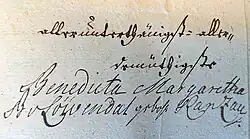 allerunterthänigst= aller=
demüthigste
Benedicta Margaretha
v Löwendal gebohr Ranzau